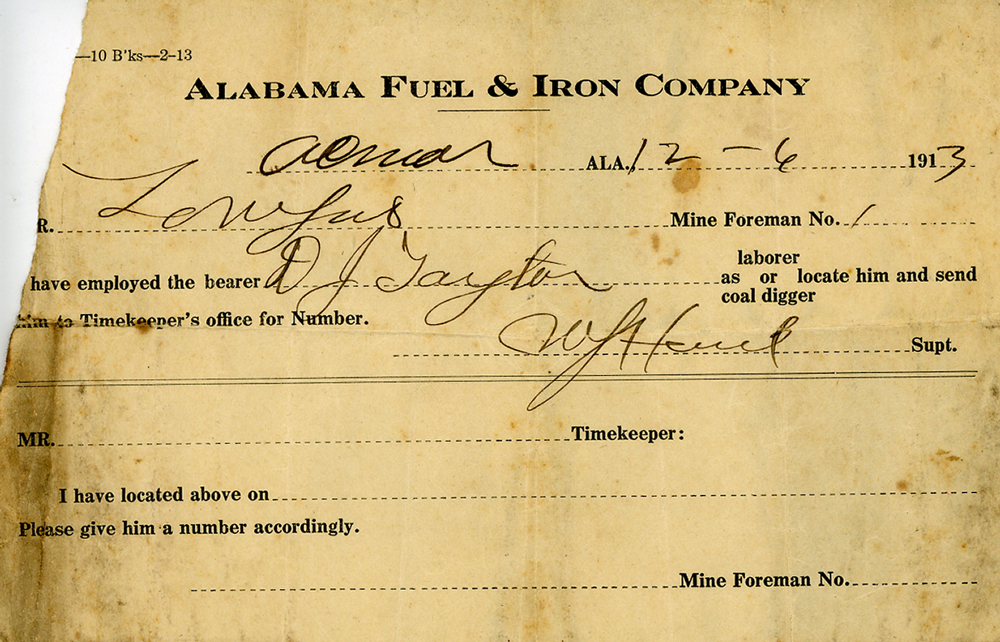 —10 B'ks—2-13
ALABAMA FUEL & IRON COMPANY
Acmar ALA. 12-6 1913
R. Mine Foreman No. 1
have employed the bearer D J Taylor as laborer or coal digger locate him and send
him to Timekeeper's office for Number.
Supt.
MR. Timekeeper:
I have located above on
Please give him a number accordingly.
Mine Foreman No.